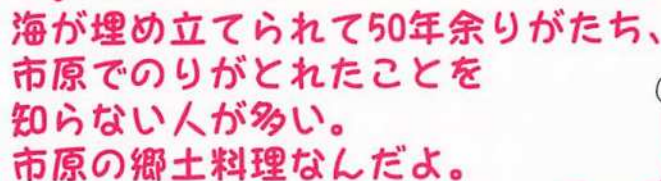 海が埋め立てられて50年余りがたち、
市原でのりがとれたことを
知らない人が多い。
市原の郷土料理なんだよ。